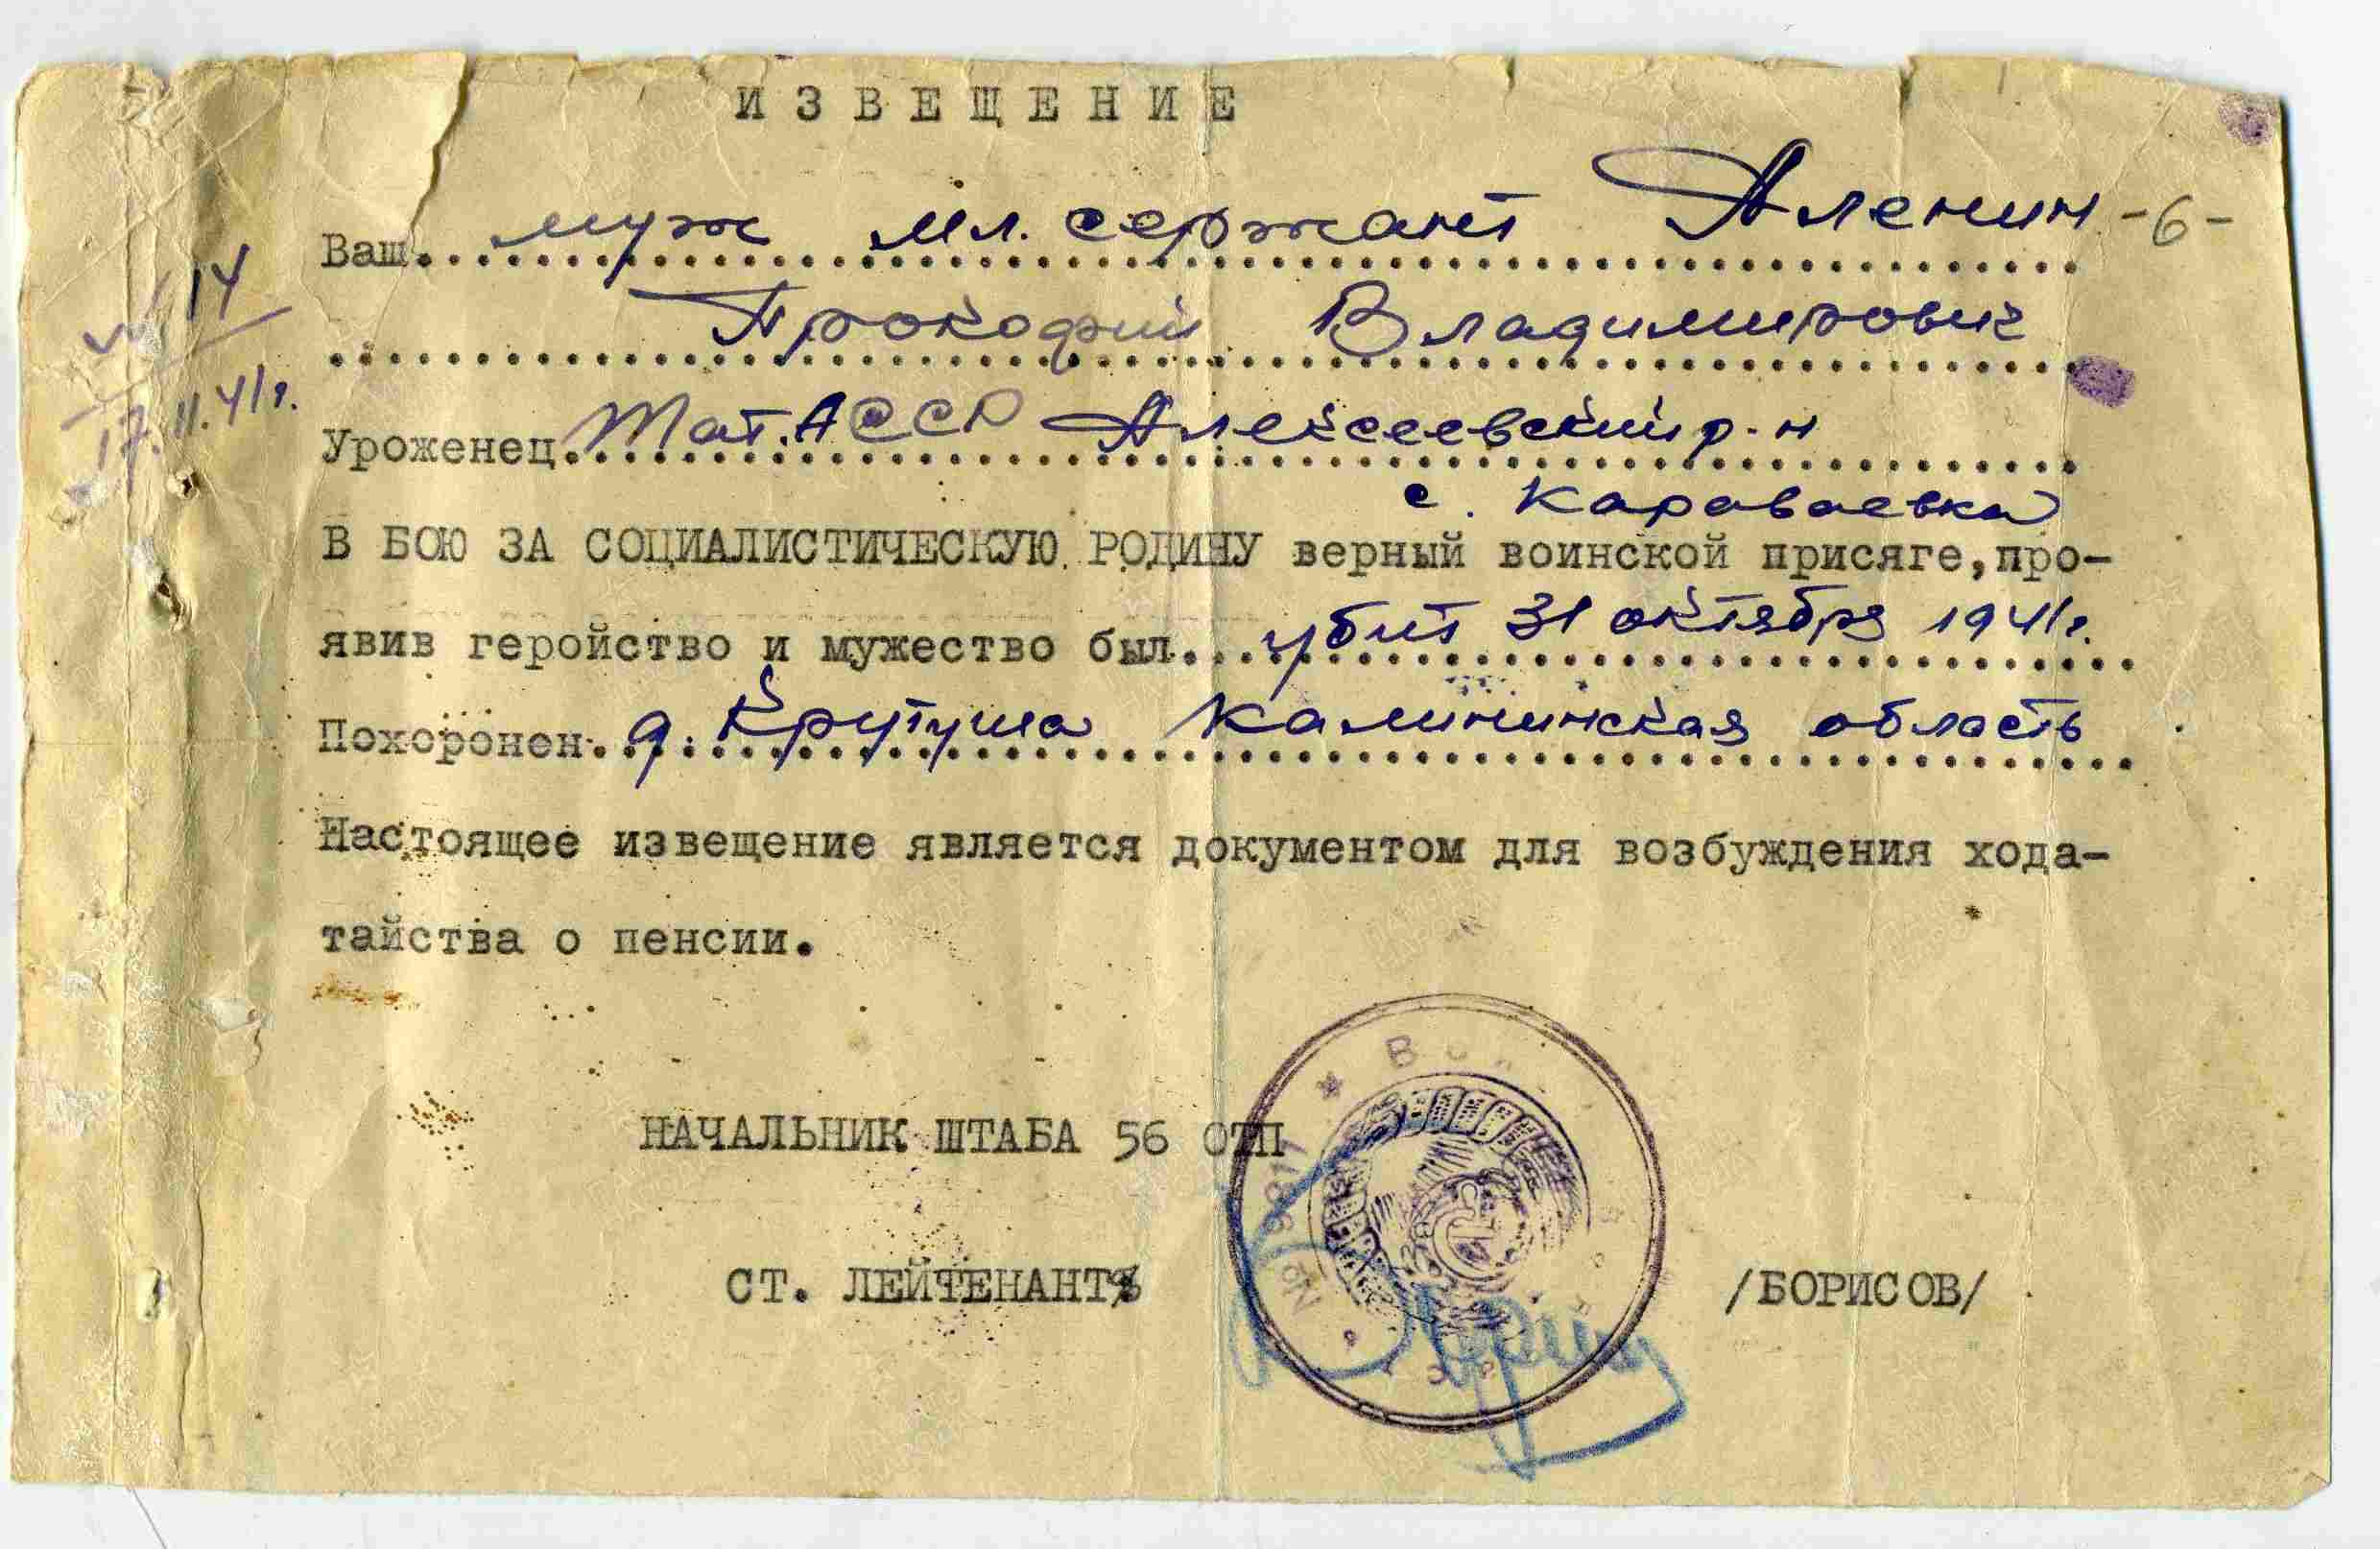 ИЗВЕЩЕНИЕ
Ваш муж мл. сержант Аленин -6-
Прокофий Владимирович
14
17.11.41г.
Уроженец Тат.АССР Алексеевский р-н
с. Караваевка
В БОЮ ЗА СОЦИАЛИСТИЧЕСКУЮ РОДИНУ верный воинской присяге, про-
явив геройство и мужество был убит 31 октября 1941г.
Похоронен д. Крутуша Калининская область
Настоящее извещение является документом для возбуждения хода-
тайства о пенсии.
НАЧАЛЬНИК ШТАБА 56 ОТП
СТ. ЛЕЙТЕНАНТ
/БОРИСОВ/